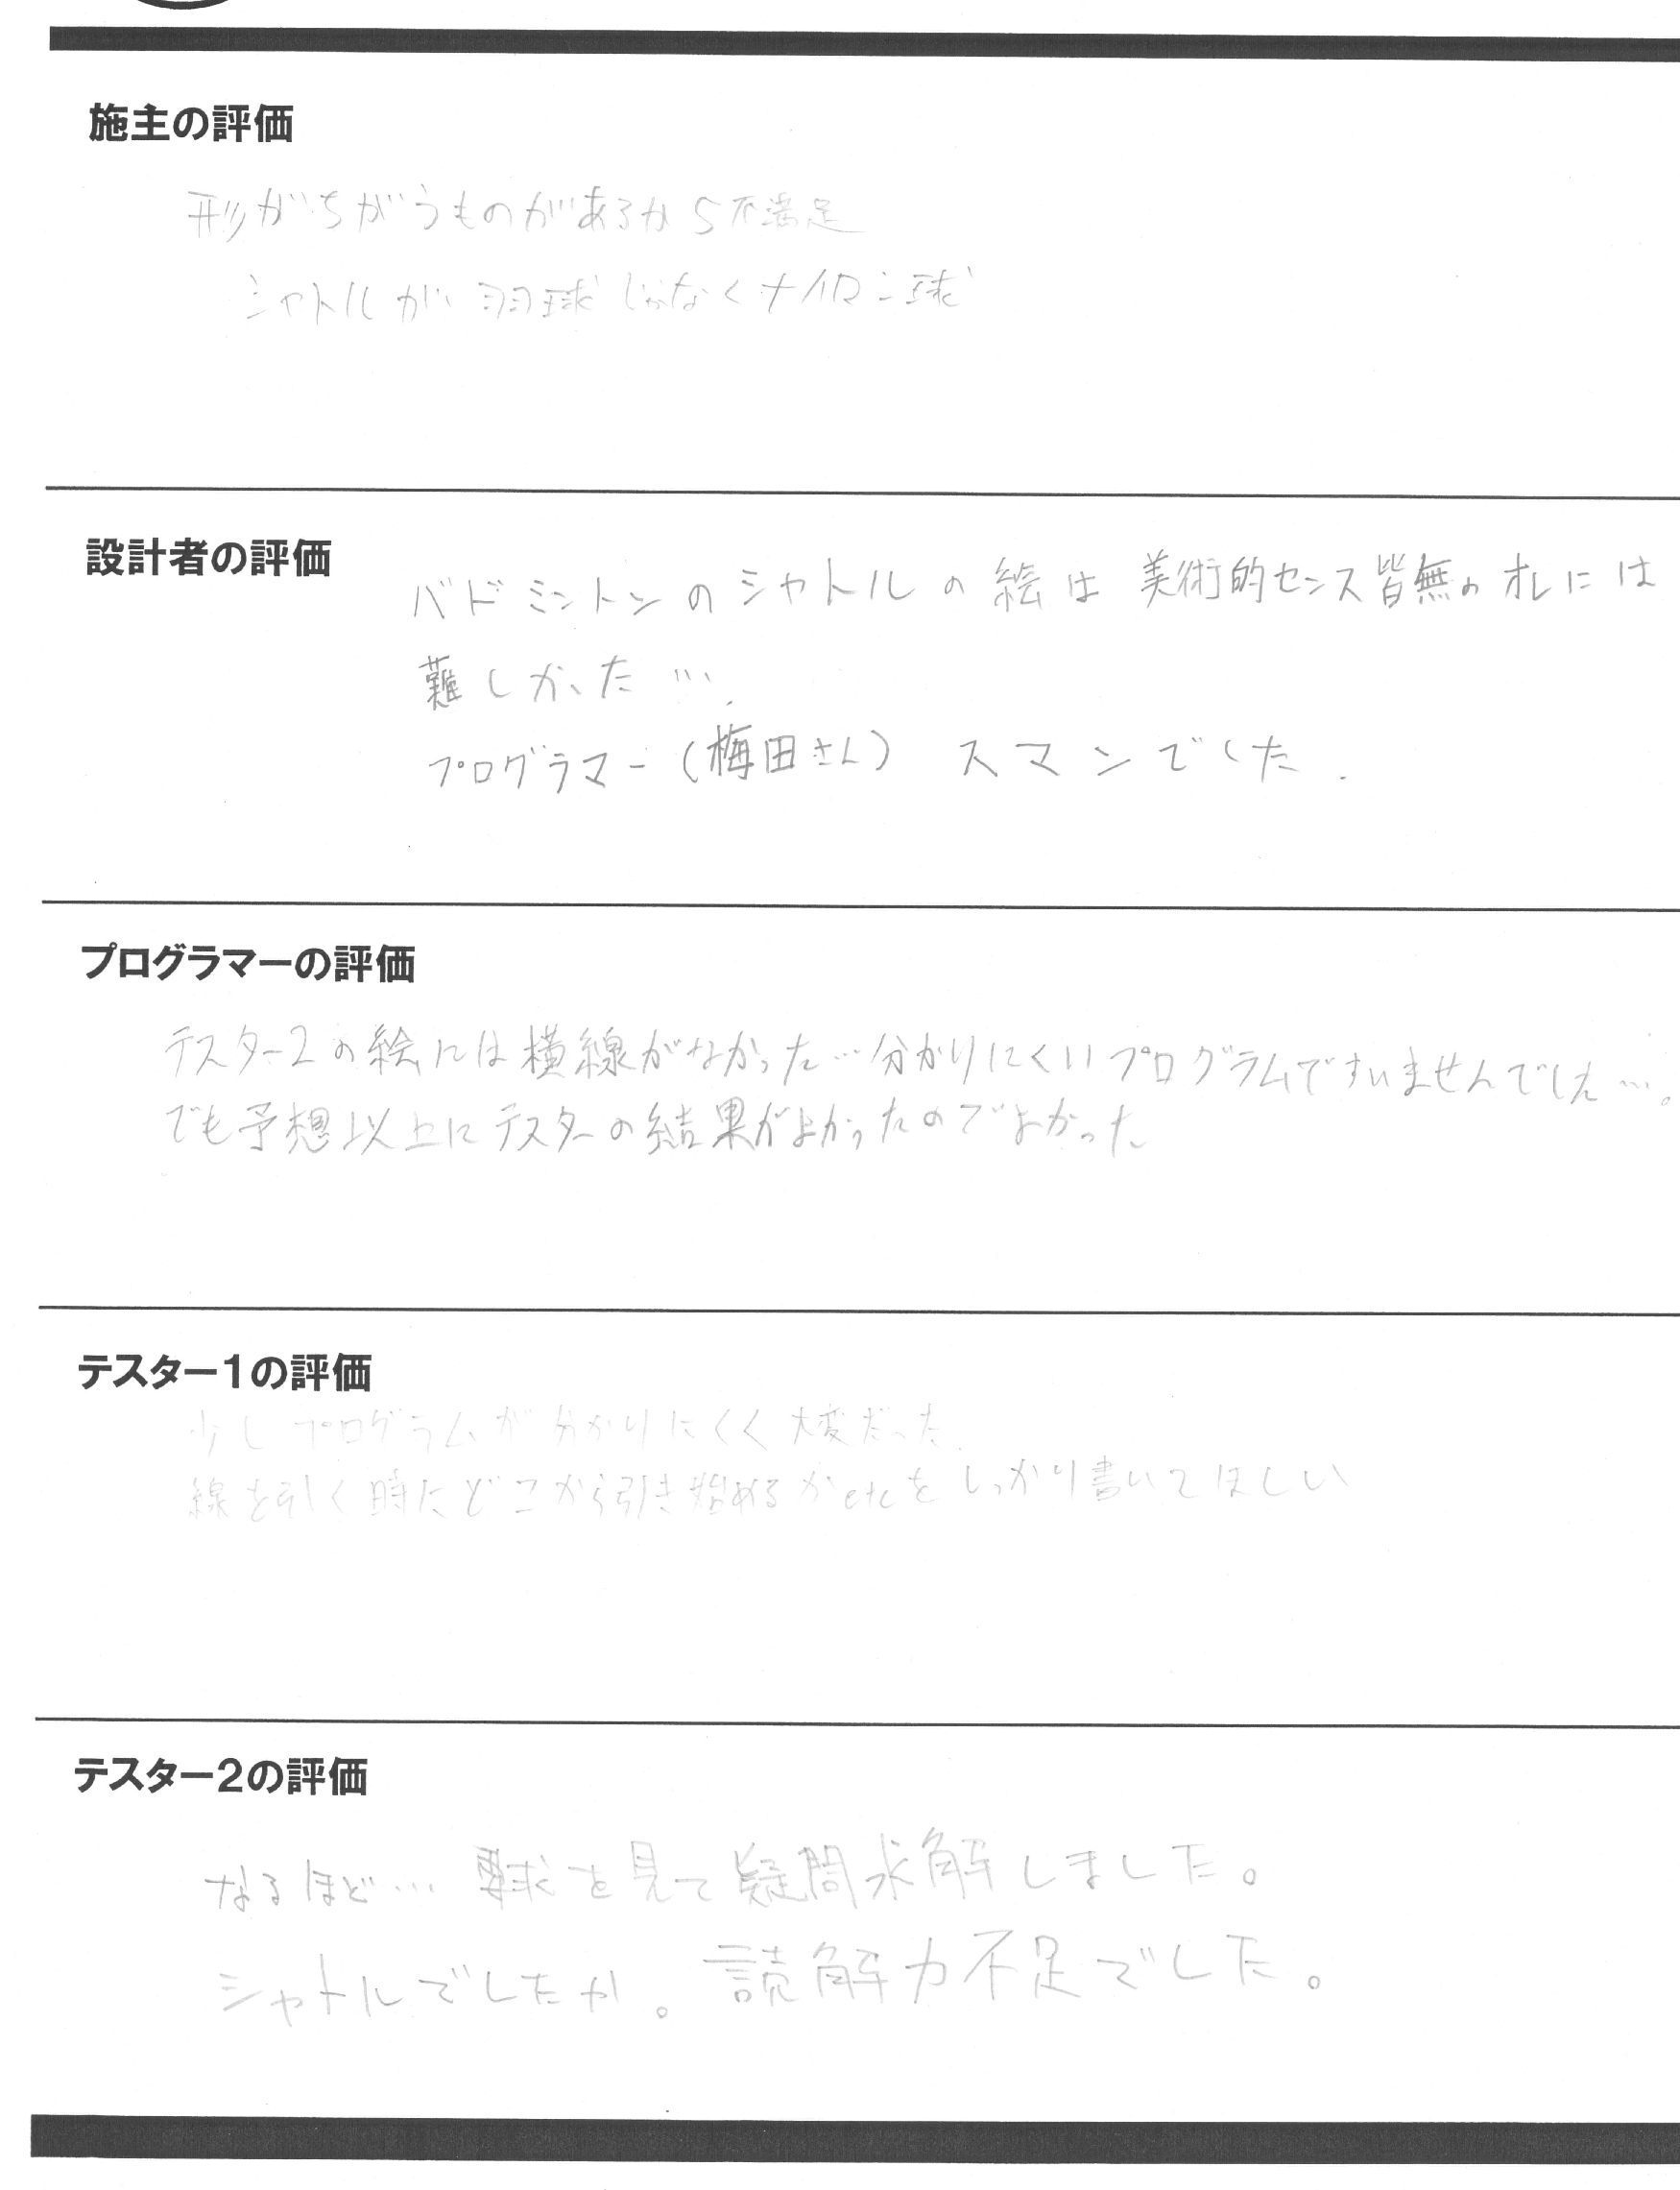 施主の評価
形がちがうものがあるから不満足
シャトルが羽球じゃなくナイロン球
設計者の評価
バドミントンのシャトルの絵は美術的センス皆無のオレには
難しかった….
プログラマー(梅田さん) スマンでした.
プログラマーの評価
テスター2の絵には横線がなかった…分かりにくいプログラムですいませんでした…。
でも予想以上にテスターの結果がよかったのでよかった
テスター1の評価
少しプログラムが分かりにくく大変だった.
線を引く時などどこから引き始めるかetcをしっかり書いてほしい
テスター2の評価
なるほど… 要求を見て疑問氷解しました。
シャトルでしたか。読解力不足でした。